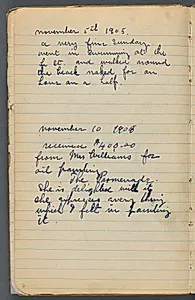 november 5th 1905
a very fine Sunday
went in swimming at the
and walked around
the beach naked for an
hour an a half.
november 10 1905
received $400.00
from Mrs Williams for
oil painting
The Promenade.
She is delighted with it
she expresses every thing
which I felt in painting
it.